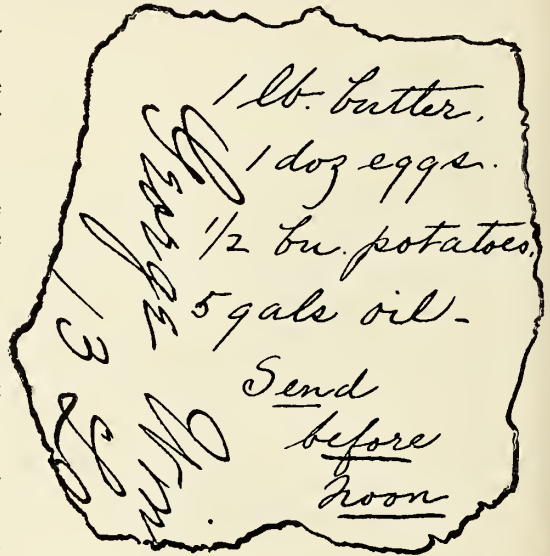 1 lb. butter.
1 doz eggs.
1/2 bu. potatoes.
5 gals oil-
Send
before
noon
George Wm
13